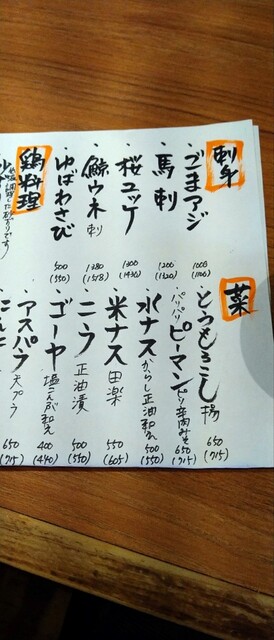 刺身
・ごまアジ 1000 (1100)
・馬刺 1200 (1320)
・桜ユッケ 1300 (1430)
・鯨ウネ刺 1380 (1518)
・ゆばわさび 500 (550)
鶏料理
菜
・とうもろこし揚 650 (715)
・パリパリピーマン ピリ辛肉みそ 650 (715)
・水ナス からし正油和え 500 (550)
・米ナス 田楽 550 (605)
・ニラ 正油漬 500 (550)
・ゴーヤ 塩こんぶ和え 400 (440)
・アスパラ 天プラ 650 (715)